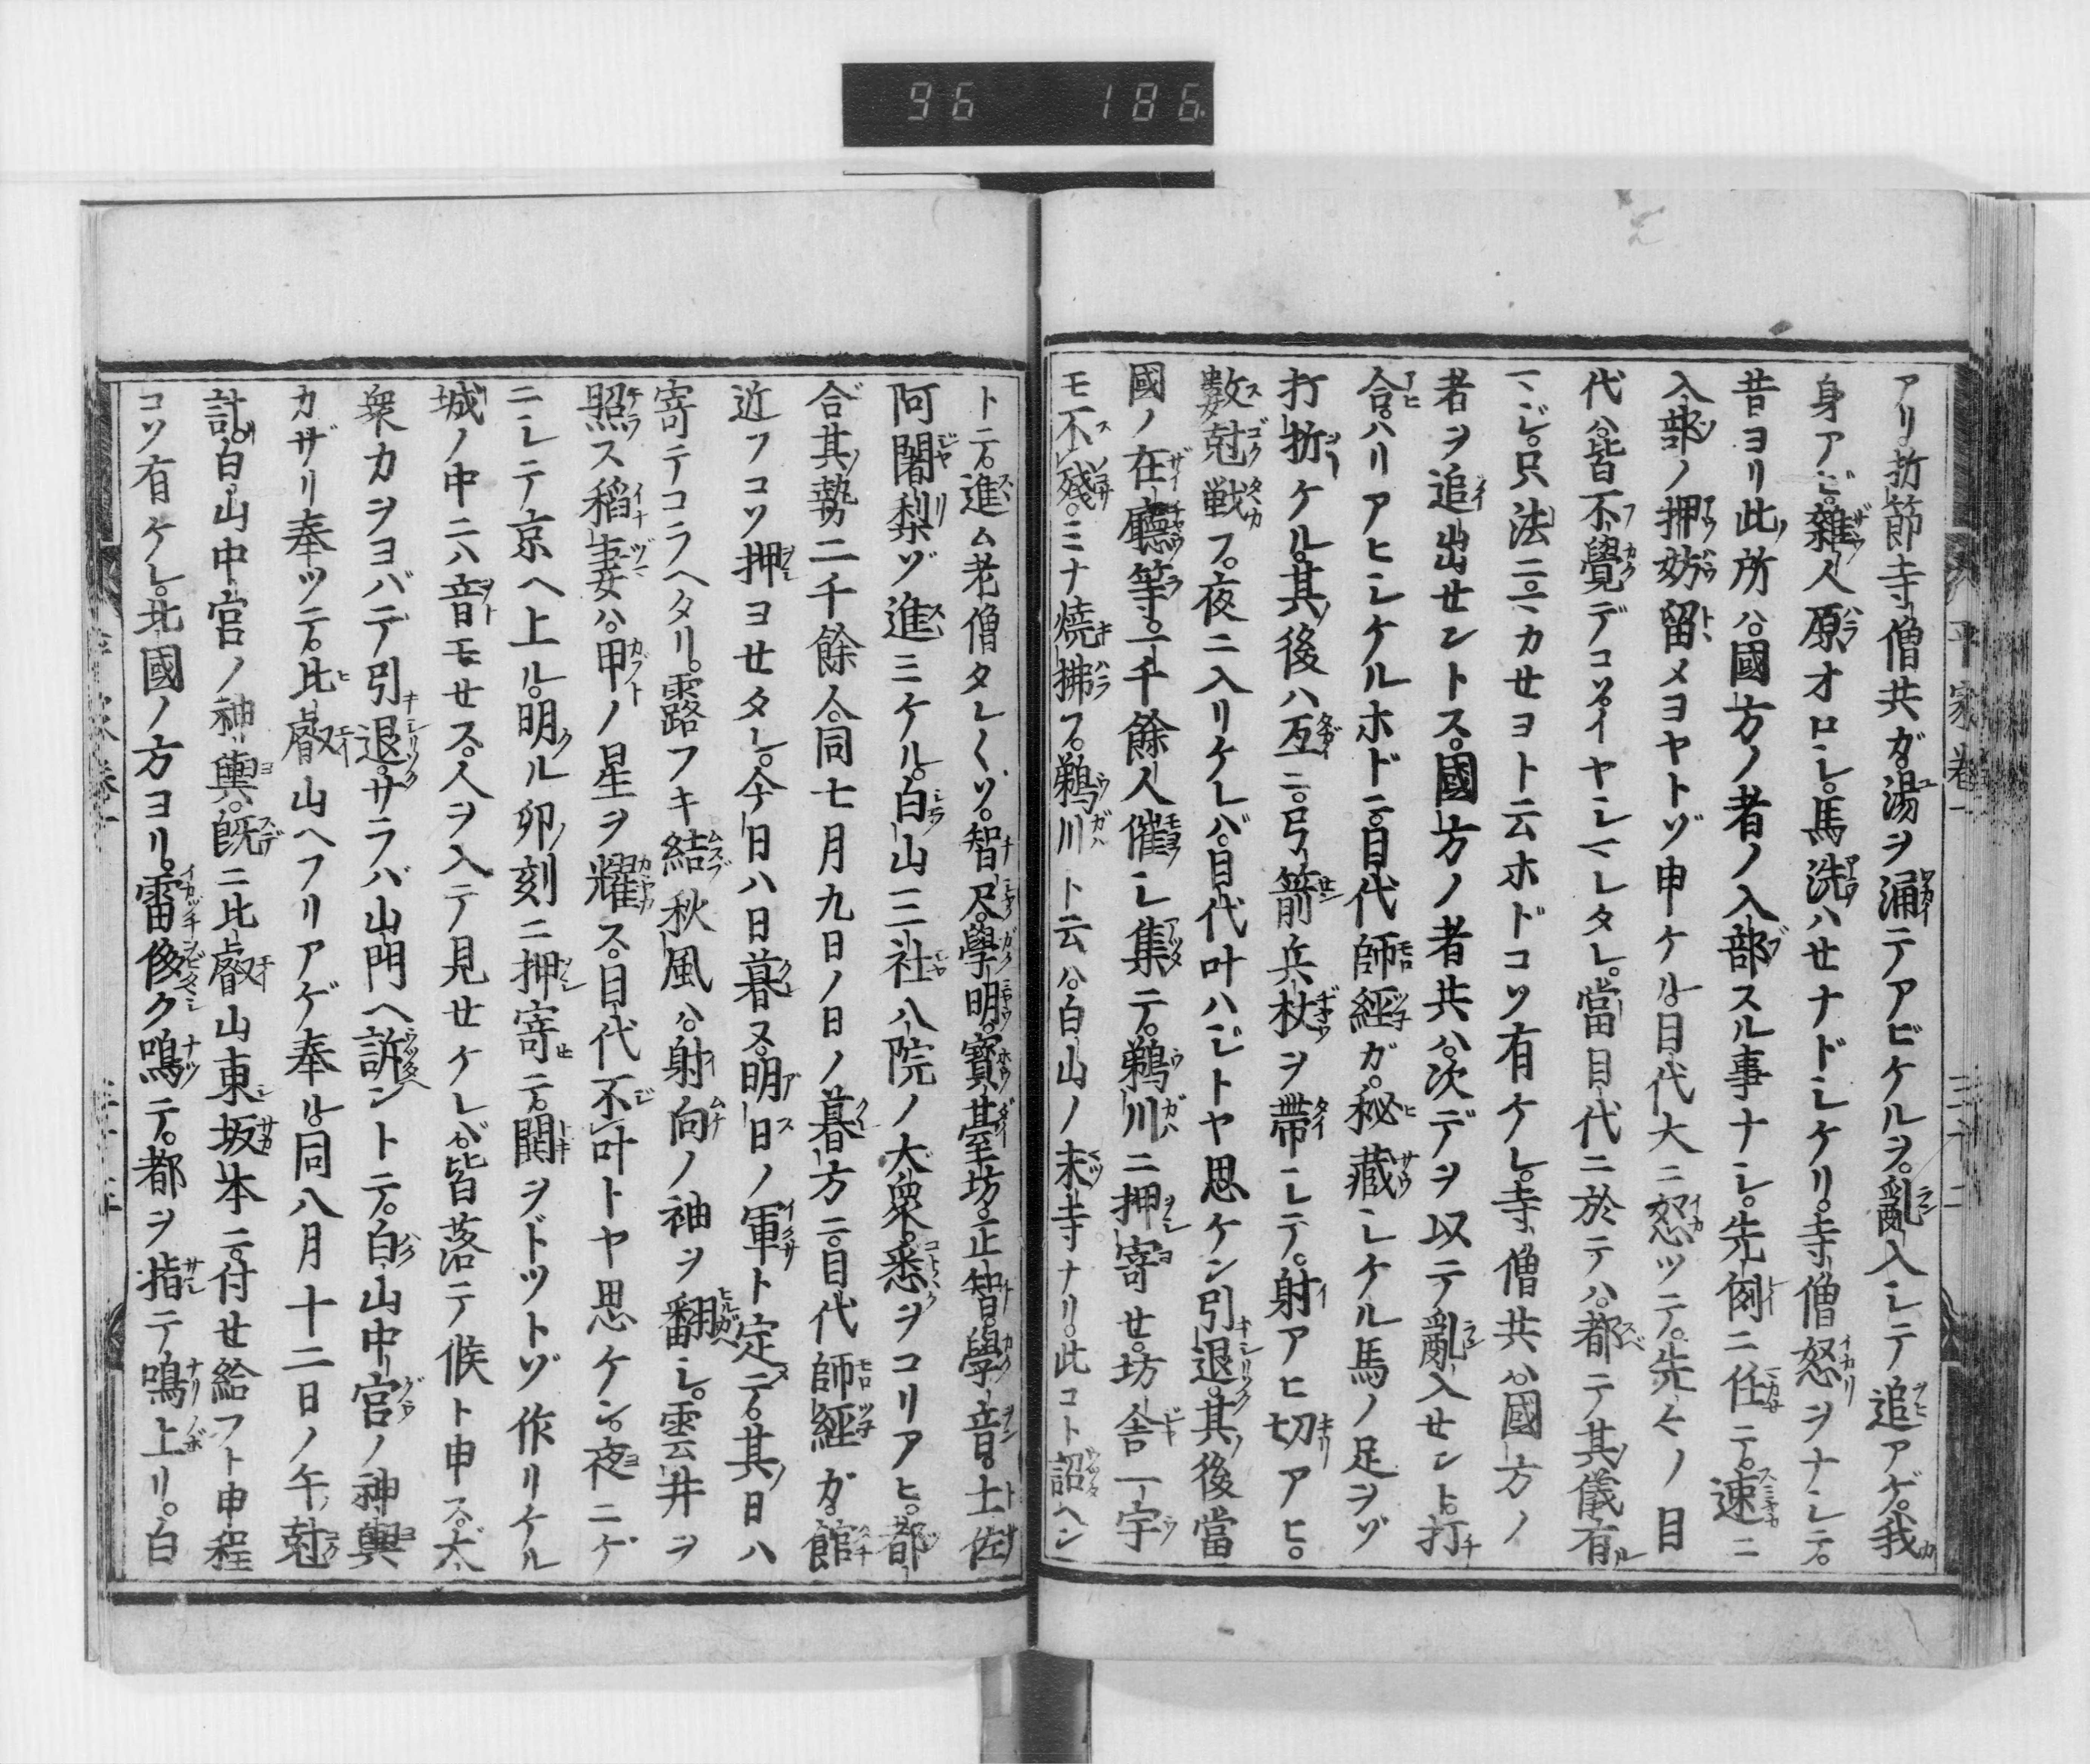 96 186
アリ。折節寺僧共ガ湯ヲ涌テアビケルヲ。亂入シテ追アゲ。我
身アビ。雜人原オロシ。馬洗ハセナドシケリ。寺僧怒ヲナシテ。
昔ヨリ此所ハ。國方ノ者ノ入部スル事ナシ。先例ニ任テ。速ニ
入部ノ押妨留メヨヤトゾ申ケル。目代大ニ怒ツテ。先々ノ目
代ハ。皆不覺デコソ。イヤシマレタレ。當目代ニ於テハ。都テ其儀有
マジ。只法ニマカセヨト云ホドコソ有ケレ。寺僧共ハ。國方ノ
者ヲ追出セントス。國方ノ者共ハ。次デヲ以テ亂入セント。打
合。ハリアヒシケルホドニ。目代師經ガ。秘藏シケル馬ノ足ヲゾ
打折ケル。其後ハ互ニ。弓箭兵杖ヲ帶シテ。射アヒ切アヒ。
數尅戦フ。夜ニ入リケレバ。目代叶ハジトヤ思ケン引退。其後當
國ノ在廳等。一千餘人催シ集テ。鵜川ニ押寄セ。坊舎一宇
モ不殘。ミナ燒拂フ。鵜川ト云ハ。白山ノ末寺ナリ。此コト訟ヘン
平家巻一
三十二
トテ。進ム老僧タレ〳〵ゾ。智尺。學明。寳臺坊。正智。學音。土佐
阿闍梨ゾ進ミケル。白山三社八院ノ大衆。悉ヲコリアヒ。都
合其勢二千餘人。同七月九日ノ日ノ暮方ニ。目代師經ガ。館
近フコソ押ヨセタレ。今日ハ日暮ヌ。明日ノ軍ト定テ。其日ハ
寄テコラヘタリ。露フキ結秋風ハ。射向ノ袖ヲ翻シ。雲井ヲ
照ス稻妻ハ。甲ノ星ヲ耀ス。目代不叶トヤ思ケン。夜ニゲ
ニシテ京ヘ上ル。明ル卯刻ニ押寄テ。閧ヲドツトゾ作リケル
城ノ中ニハ音モセス。人ヲ入テ見セケレバ。皆落テ候ト申ス。大
衆カヲヨバデ引退。サラバ山門ヘ訴ントテ。白山中宮ノ神輿
カザリ奉ツテ。比叡山ヘフリアゲ奉ル。同八月十二日ノ午尅
計。白山中宮ノ神輿。既ニ比叡山東坂本ニ。付セ給フト申程
コソ有ケレ。北國ノ方ヨリ。雷俢ク鳴テ。都ヲ指テ鳴上リ。白